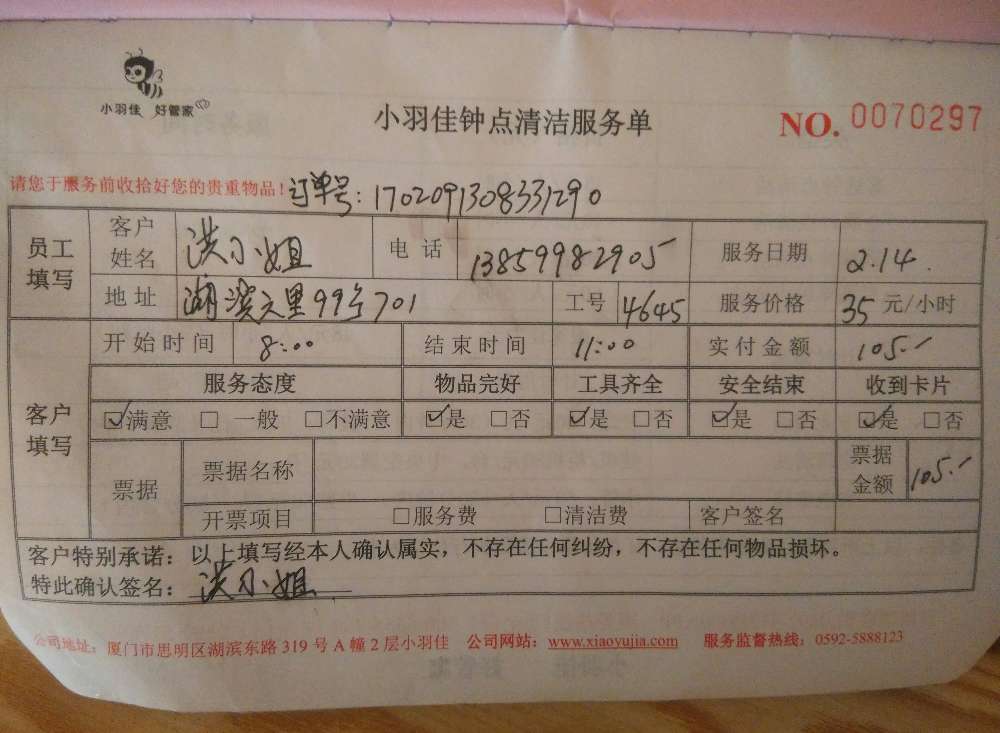 小羽佳 好管家
小羽佳钟点清洁服务单
NO. 0070297
请您于服务前收拾好您的贵重物品! 订单号: 1702091308331290
员工填写 客户姓名 洪小姐 电话 13859982905 服务日期 2.14.
地址 湖滨六里99号701 工号 4645 服务价格 35 元/小时
客户填写 开始时间 8:00 结束时间 11:00 实付金额 105.-
服务态度 物品完好 工具齐全 安全结束 收到卡片
☑满意 □ 一般 □不满意 ☑是 □否 ☑是 □否 ☑是 □否 ☑是 □否
票据 票据名称 票据金额 105.-
开票项目 □服务费 □清洁费 客户签名
客户特别承诺: 以上填写经本人确认属实, 不存在任何纠纷, 不存在任何物品损坏。
特此确认签名: 洪小姐
公司地址: 厦门市思明区湖滨东路 319 号 A 幢 2 层小羽佳 公司网站: www.xiaoyujia.com 服务监督热线: 0592-5888123